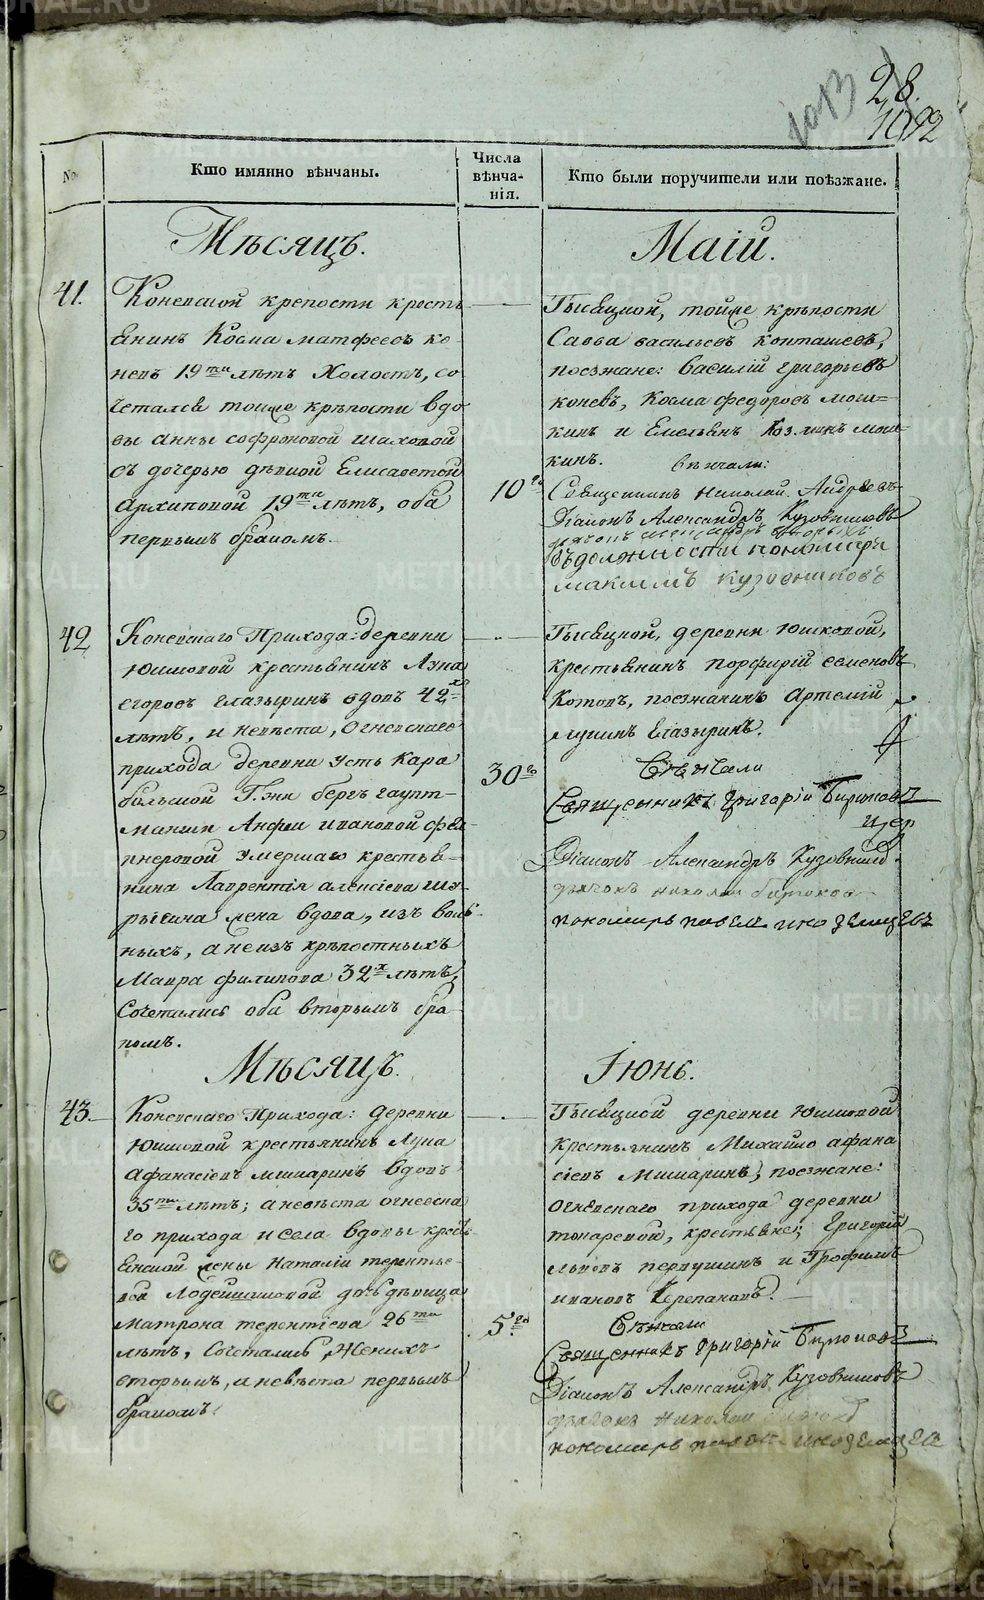 28.
1013
1092
№
Кто имянно вѣнчаны.
Числа вѣнча-нія.
Кто были поручители или поѣзжане.
Мѣсяцъ.
Маій.
41.
Коневской крепости кресть
янинъ Косма матфеевъ ко-
невъ 19ти лѣтъ Холостъ, со
четался тойже крѣпости вдо
вы анны софроновой шаховой
съ дочерью дѣвкой Елисаветой
архиповой 19ти лѣтъ, оба
первымъ бракомъ.
10го
Тысяцкой, тойже крѣпости
Савва васильевъ конташевъ,
поезжане: василій григорьевъ
коневъ, Косма федоровъ мош=
кинъ и Емельянъ Козминъ мош
кинъ.
вѣнчали:
Священникъ Николай Андреевъ
Діаконъ Александръ Кузовниковъ
въ должности пономаря
максимъ кузовниковъ
42
Коневскаго Прихода: деревни
Юшковой крестьянинъ Лука
егоровъ глазыринъ вдовъ 42х
лѣтъ, и невѣста, огневскаго
прихода деревни Усть Кара
больской Г.жи бергъ гаупт-
манши Анфеи ивановой фел
кнеровой умершаго крестья-
нина Лаврентія алексіева
жена вдова, изъ воль-
ныхъ, а не изъ крѣпостныхъ
Мавра филипова 32х лѣтъ,
Сочетались оба вторымъ бра-
комъ.
30го
Тысяцкой, деревни Юшковой,
крестьянинъ порфирій семеновъ
Котовъ, поезжанинъ артемій
лукинъ Глазыринъ.
Вѣнчали
Священникъ Григорій Бирюковъ
Діаконъ Александръ Кузовников
дьячокъ николай бирюков
пономарь павел иноземцевъ
Мѣсяцъ.
Іюнь.
43.
Коневскаго Прихода: деревни
Юшковой крестьянинъ Лука
Афанасіевъ мишаринъ вдовъ
35ти лѣтъ; а невѣста огневска
го прихода и села вдовы кресть
янской жены Наталіи терентье-
вой Лодейщиковой дочь дѣвица
матрона терентіева 26ти
лѣтъ, Сочетались, Женихъ
вторымъ, и невѣста первымъ
бракомъ.
5го
Тысяцкой деревни юшковой
крестьянинъ Михайло афана
сіевъ Мишаринъ, поезжане:
огневскаго прихода деревни
токаревой, крестьяне, Григорій
львовъ первушинъ и Трофимъ
ивановъ Черепановъ.
Вѣнчали
Священникъ Григорій Бирюковъ
Діаконъ Александръ Кузовниковъ
дьячокъ Николай
пономарь павел иноземцев
METRIKI.GASO-URAL.RU